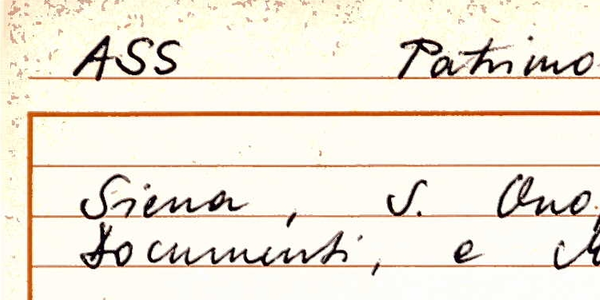 ASS Patrimo
Siena, S. Ono
Documenti, e